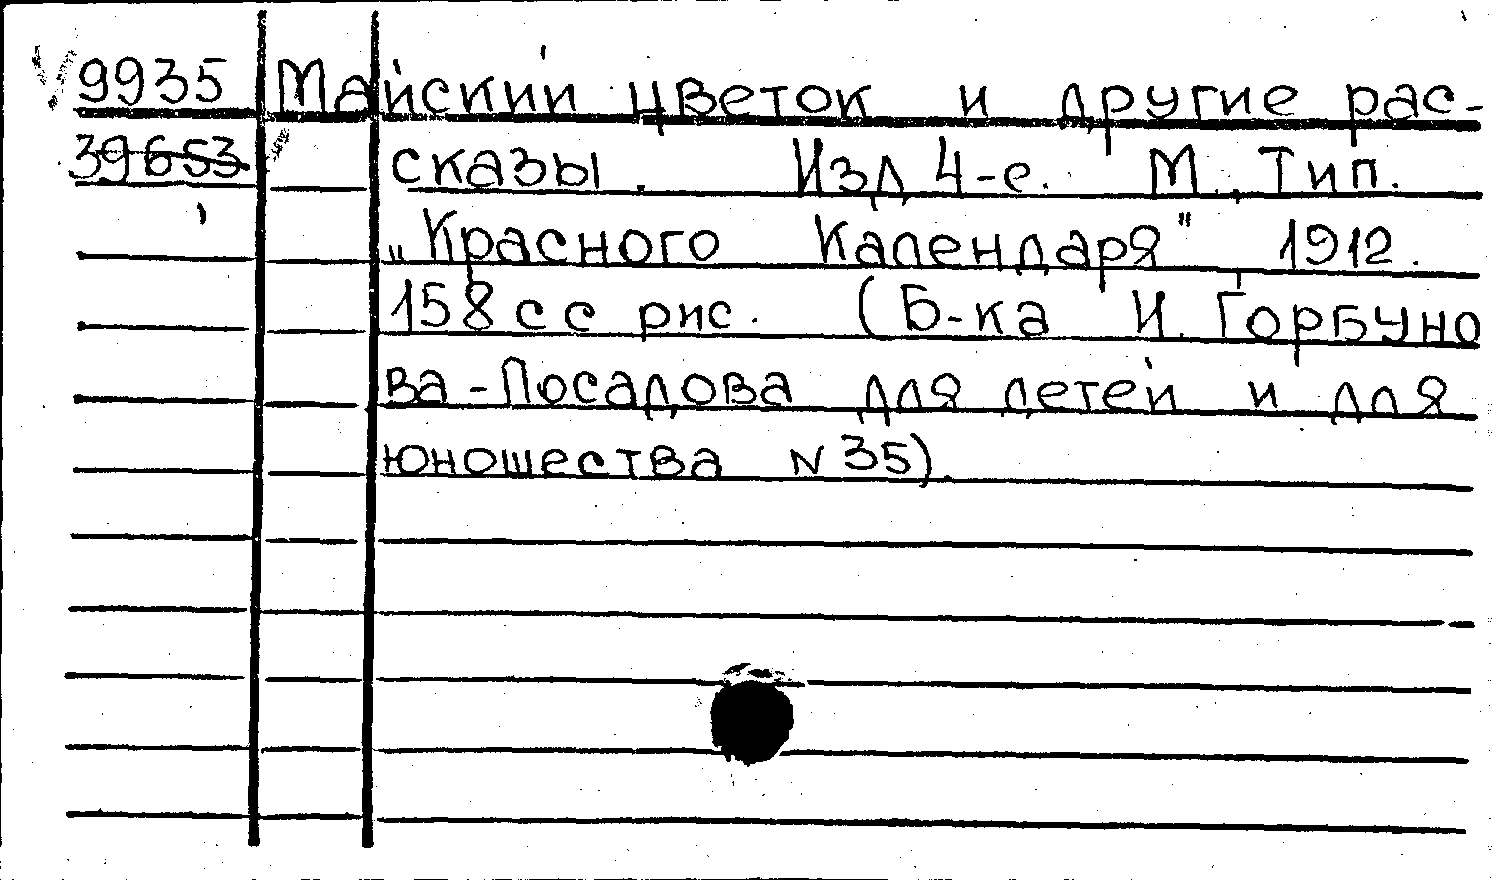 9935 Майский цветок и другие рас-
39653 сказы. Изд 4-е. М., Тип.
„Красного Календаря" 1912.
158 с с рис. (Б-ка И. Горбуно
ва-Посадова для детей и для
юношества N 35).